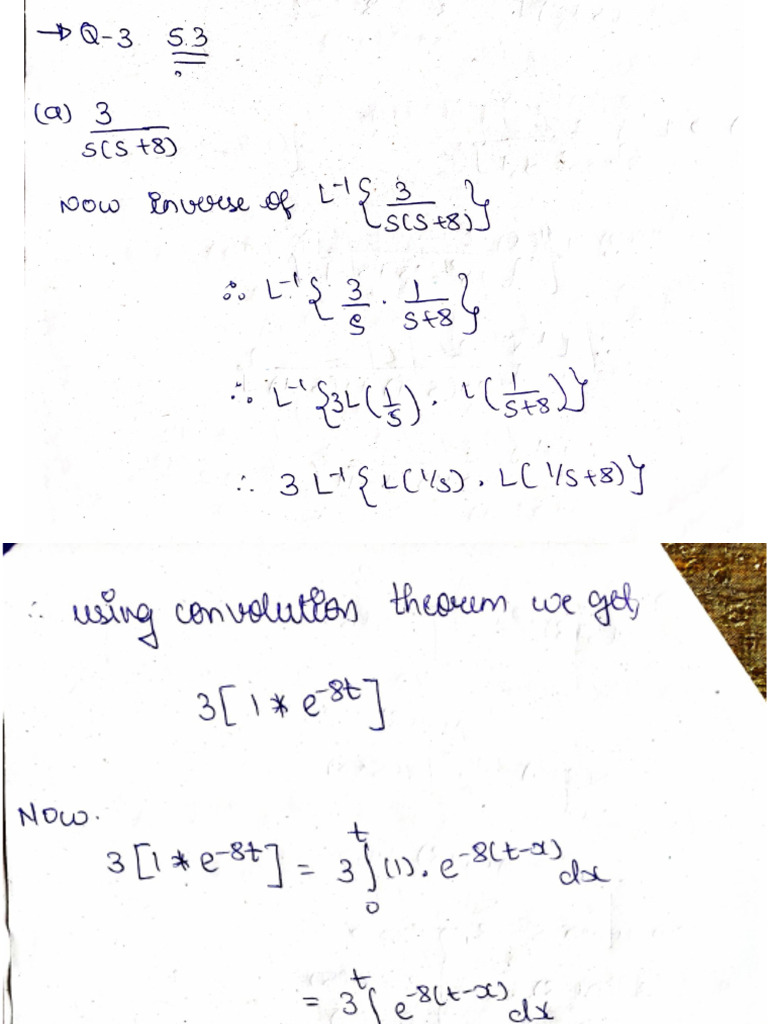 → Q-3 5.3
(a) 3/(s(s+8))
Now Inverse of L⁻¹{3/(s(s+8))}
∴ L⁻¹{3/s · 1/(s+8)}
∴ L⁻¹{3L(1/s) · L(1/(s+8))}
∴ 3 L⁻¹{L(1/s) · L(1/s+8)}
∴ using convolution theorem we get,
3[1 * e^(-8t)]
Now.
3[1 * e^(-8t)] = 3∫₀ᵗ (1) · e^(-8(t-x)) dx
= 3∫ᵗ e^(-8(t-x)) dx